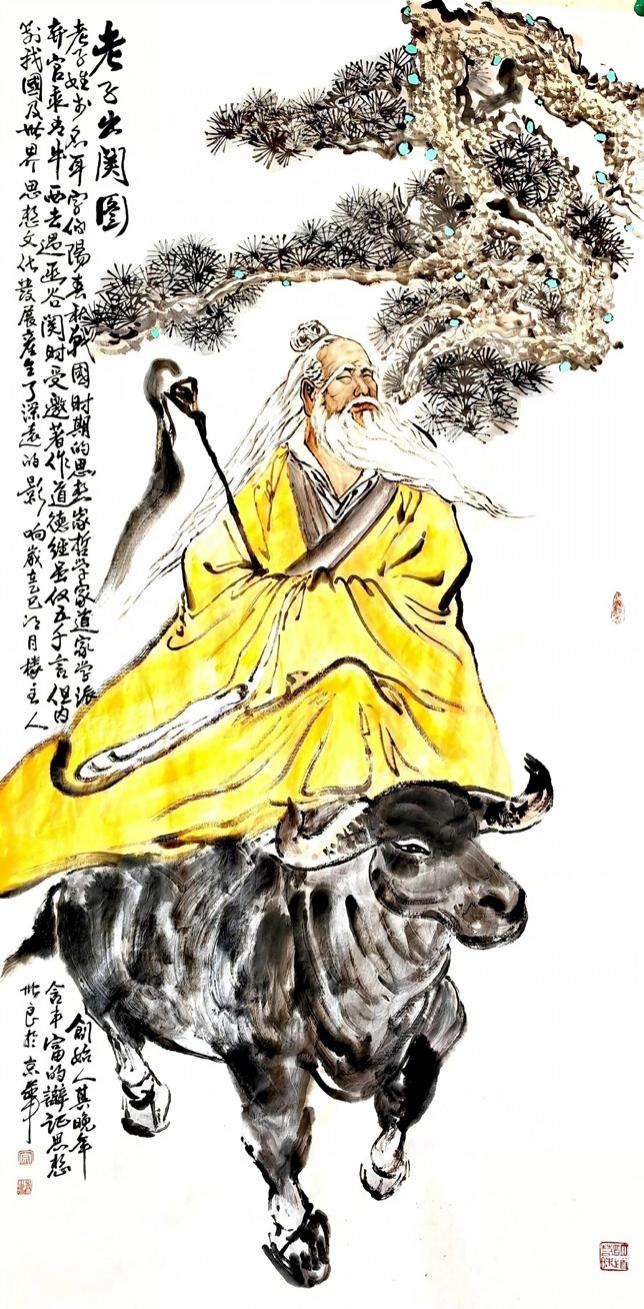 老子出関圖
老子姓李名耳字伯陽春秋戰國时期的思想家哲学家道家学派創始人其晚年
弃官乘青牛西去過函谷関时受邀著作道德經虽仅五千言但内含丰富的辯证思想
對我國及世界思想文化發展產生了深遠的影响歲辛巳月樓主人世良於京華